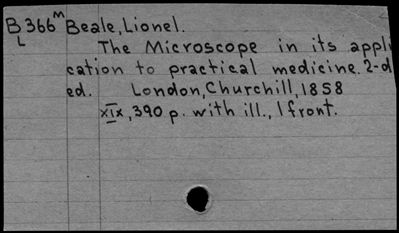 B366M Beale, Lionel.
L The Microscope in its appli
cation to practical medicine. 2-d
ed. London, Churchill, 1858
XIX, 390 p. with ill., 1 front.